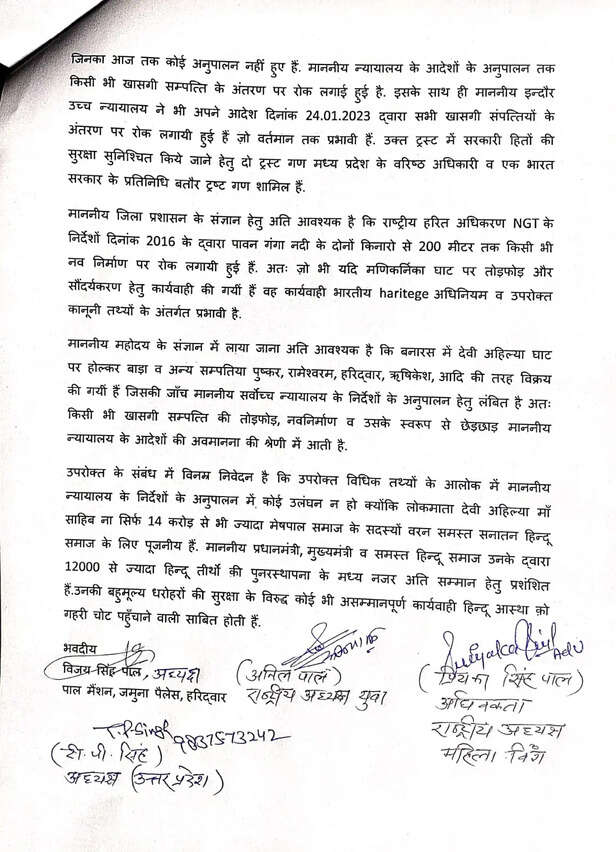 जिनका आज तक कोई अनुपालन नहीं हुए हैं. माननीय न्यायालय के आदेशों के अनुपालन तक
किसी भी खासगी सम्पत्ति के अंतरण पर रोक लगाई हुई है. इसके साथ ही माननीय इन्दौर
उच्च न्यायालय ने भी अपने आदेश दिनांक 24.01.2023 द्वारा सभी खासगी संपत्तियों के
अंतरण पर रोक लगायी हुई हैं ज़ो वर्तमान तक प्रभावी हैं. उक्त ट्रस्ट में सरकारी हितों की
सुरक्षा सुनिश्चित किये जाने हेतु दो ट्रस्ट गण मध्य प्रदेश के वरिष्ठ अधिकारी व एक भारत
सरकार के प्रतिनिधि बतौर ट्रष्ट गण शामिल हैं.
माननीय जिला प्रशासन के संज्ञान हेतु अति आवश्यक है कि राष्ट्रीय हरित अधिकरण NGT के
निर्देशों दिनांक 2016 के द्वारा पावन गंगा नदी के दोनों किनारो से 200 मीटर तक किसी भी
नव निर्माण पर रोक लगायी हुई हैं. अतः ज़ो भी यदि मणिकर्निका घाट पर तोड़फोड़ और
सौंदर्यकरण हेतु कार्यवाही की गयीं हैं वह कार्यवाही भारतीय haritege अधिनियम व उपरोक्त
कानूनी तथ्यों के अंतर्गत प्रभावी है.
माननीय महोदय के संज्ञान में लाया जाना अति आवश्यक है कि बनारस में देवी अहिल्या घाट
पर होल्कर बाड़ा व अन्य सम्पतिया पुष्कर, रामेश्वरम, हरिद्वार, ऋषिकेश, आदि की तरह विक्रय
की गयीं हैं जिसकी जाँच माननीय सर्वोच्च न्यायालय के निर्देशों के अनुपालन हेतु लंबित है अतः
किसी भी खासगी सम्पत्ति की तोड़फोड़, नवनिर्माण व उसके स्वरूप से छेड़छाड़ माननीय
न्यायालय के आदेशों की अवमानना की श्रेणी में आती है.
उपरोक्त के संबंध में विनम्र निवेदन है कि उपरोक्त विधिक तथ्यों के आलोक में माननीय
न्यायालय के निर्देशों के अनुपालन में कोई उलंघन न हो क्योंकि लोकमाता देवी अहिल्या माँ
साहिब ना सिर्फ 14 करोड़ से भी ज्यादा मेषपाल समाज के सदस्यों वरन समस्त सनातन हिन्दू
समाज के लिए पूजनीय हैं. माननीय प्रधानमंत्री, मुख्यमंत्री व समस्त हिन्दू समाज उनके द्वारा
12000 से ज्यादा हिन्दू तीर्थो की पुनरस्थापना के मध्य नजर अति सम्मान हेतु प्रशंशित
हैं.उनकी बहुमूल्य धरोहरों की सुरक्षा के विरुद्ध कोई भी असम्मानपूर्ण कार्यवाही हिन्दू आस्था क़ो
गहरी चोट पहुँचाने वाली साबित होती हैं.
भवदीय
विजय सिंह पाल, अध्यक्ष
पाल मैंशन, जमुना पैलेस, हरिद्वार
(अनिल पाल)
राष्ट्रीय अध्यक्ष युवा
(प्रियंका सिंह पाल)
अधिवक्ता
राष्ट्रीय अध्यक्ष
महिला विंग
T.P. Singh 9837573242
(टी. पी. सिंह)
अध्यक्ष (उत्तर प्रदेश)